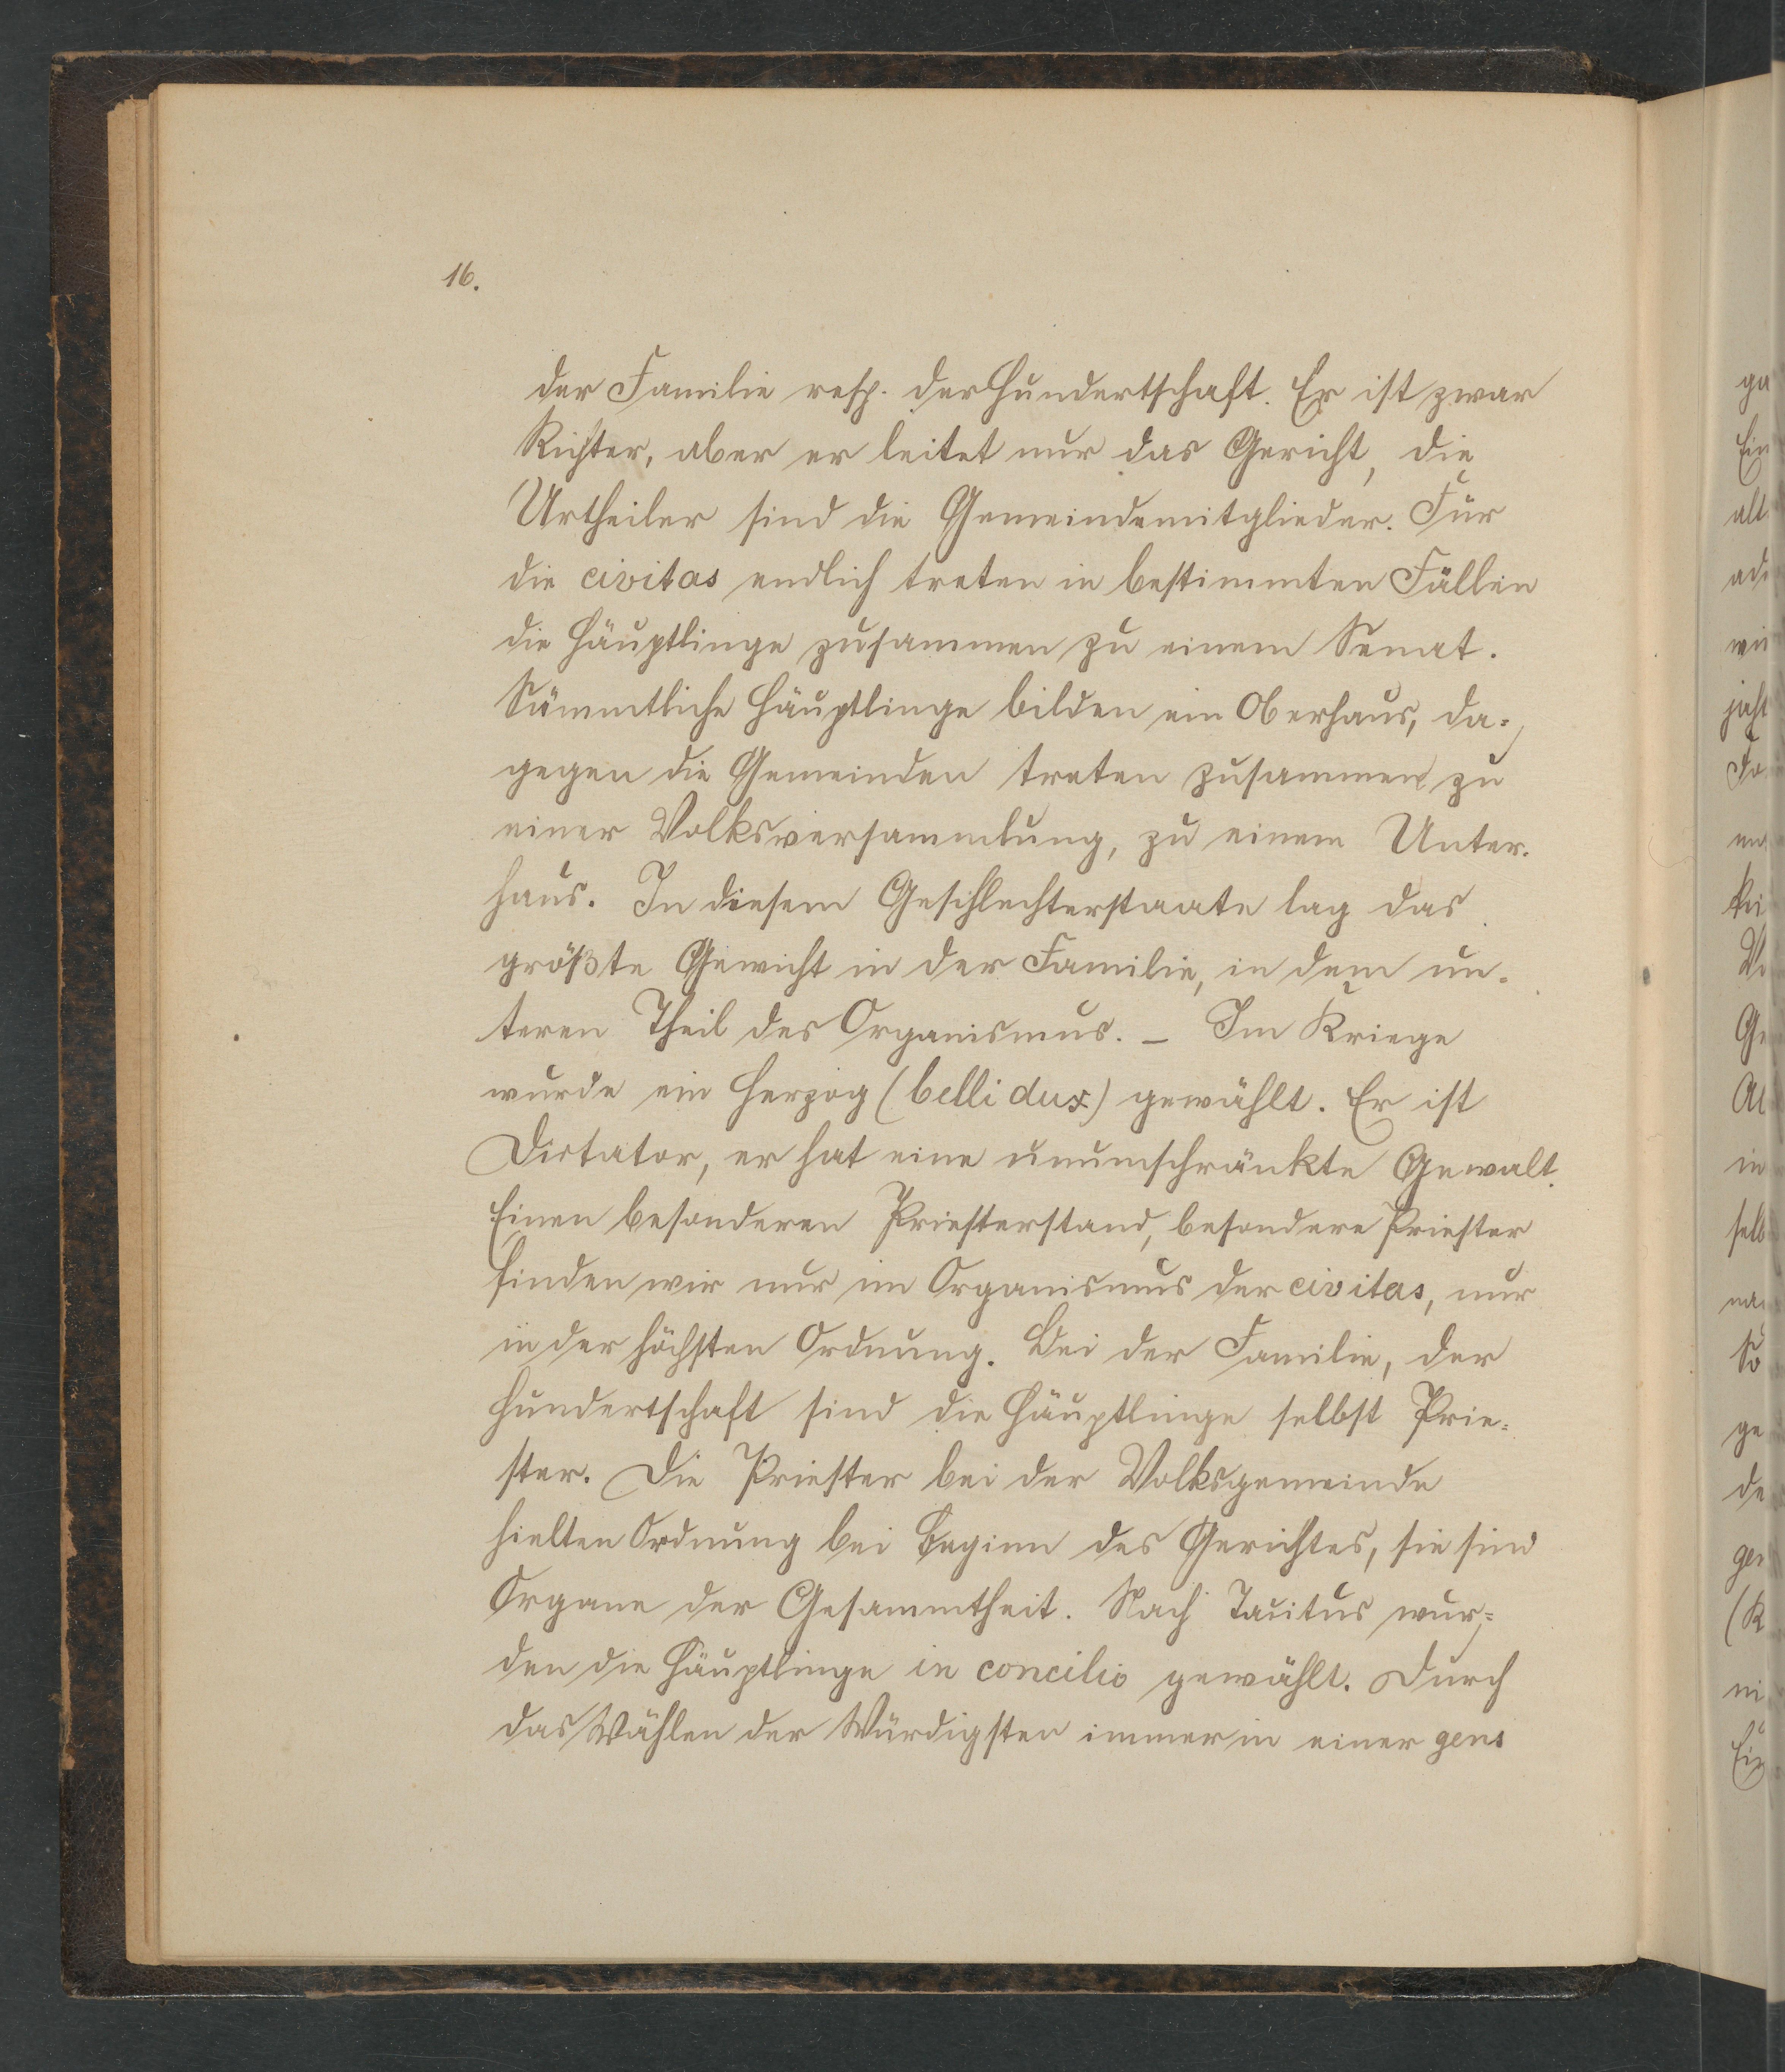 16.
der Familie resp. der Hundertschaft. Er ist zwar
Richter, aber er leitet nur das Gericht, die
Urtheiler sind die Gemeindemitglieder. Für
die civitas endlich treten in bestimmten Fällen
die Häuptlinge zusammen zu einem Senat.
Sämmtliche Häuptlinge bilden ein Oberhaus, da-
gegen die Gemeinden treten zusammen zu
einer Volksversammlung, zu einem Unter-
haus. In diesem Geschlechterstaate lag das
größte Gewicht in der Familie, in dem un-
teren Theil des Organismus. – Im Kriege
wurde ein Herzog (belli dux) gewählt. Er ist
Dictator, er hat eine unumschränkte Gewalt.
Einen besonderen Priesterstand, besondere Priester
finden wir nur im Organismus der civitas, nur
in der höchsten Ordnung. Bei der Familie, der
Hundertschaft sind die Häuptlinge selbst Prie-
ster. Die Priester bei der Volksgemeinde
hielten Ordnung bei Beginn des Gerichtes, sie sind
Organe der Gesammtheit. Nach Tacitus wur-
den die Häuptlinge in concilio gewählt. Durch
das Wählen der Würdigsten immer in einer gens